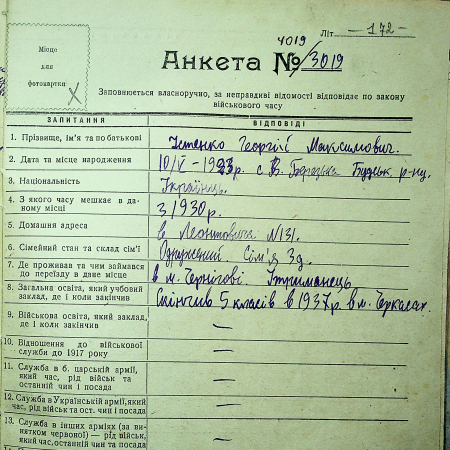 Місце
для
фотокартки
4019
Літ. —172—
Анкета № 3019
Заповнюється власноручно, за неправдиві відомості відповідає по закону
військового часу
ЗАПИТАННЯ
ВІДПОВІДІ
1. Прізвище, ім'я та по батькові
Георгій Максимович.
2. Дата та місце народження
10/V - 1923р. с. В. р-ну.
3. Національність
Українець.
4. З якого часу мешкає в даному місці
З 1930 р.
5. Домашня адреса
Леонтовича №131.
6. Сімейний стан та склад сім'ї
Одружений. Сім'я 3д.
7. Де проживав та чим займався
до переїзду в дане місце
в м. Чернігові.
8. Загальна освіта, який учбовий
заклад, де і коли закінчив
Скінчив 5 класів в 1937р в м. Черкасах.
9. Військова освіта, який заклад,
де і коли закінчив
—
10. Відношення до військової
служби до 1917 року
—
11. Служба в б. царській армії,
який час, рід військ та
останній чин і посада
—
12. Служба в Українській армії, який
час, рід військ та ост. чин і посада
—
13. Служба в інших арміях (за ви-
нятком червоної) — рід військ,
який час, останній чин та посада
—